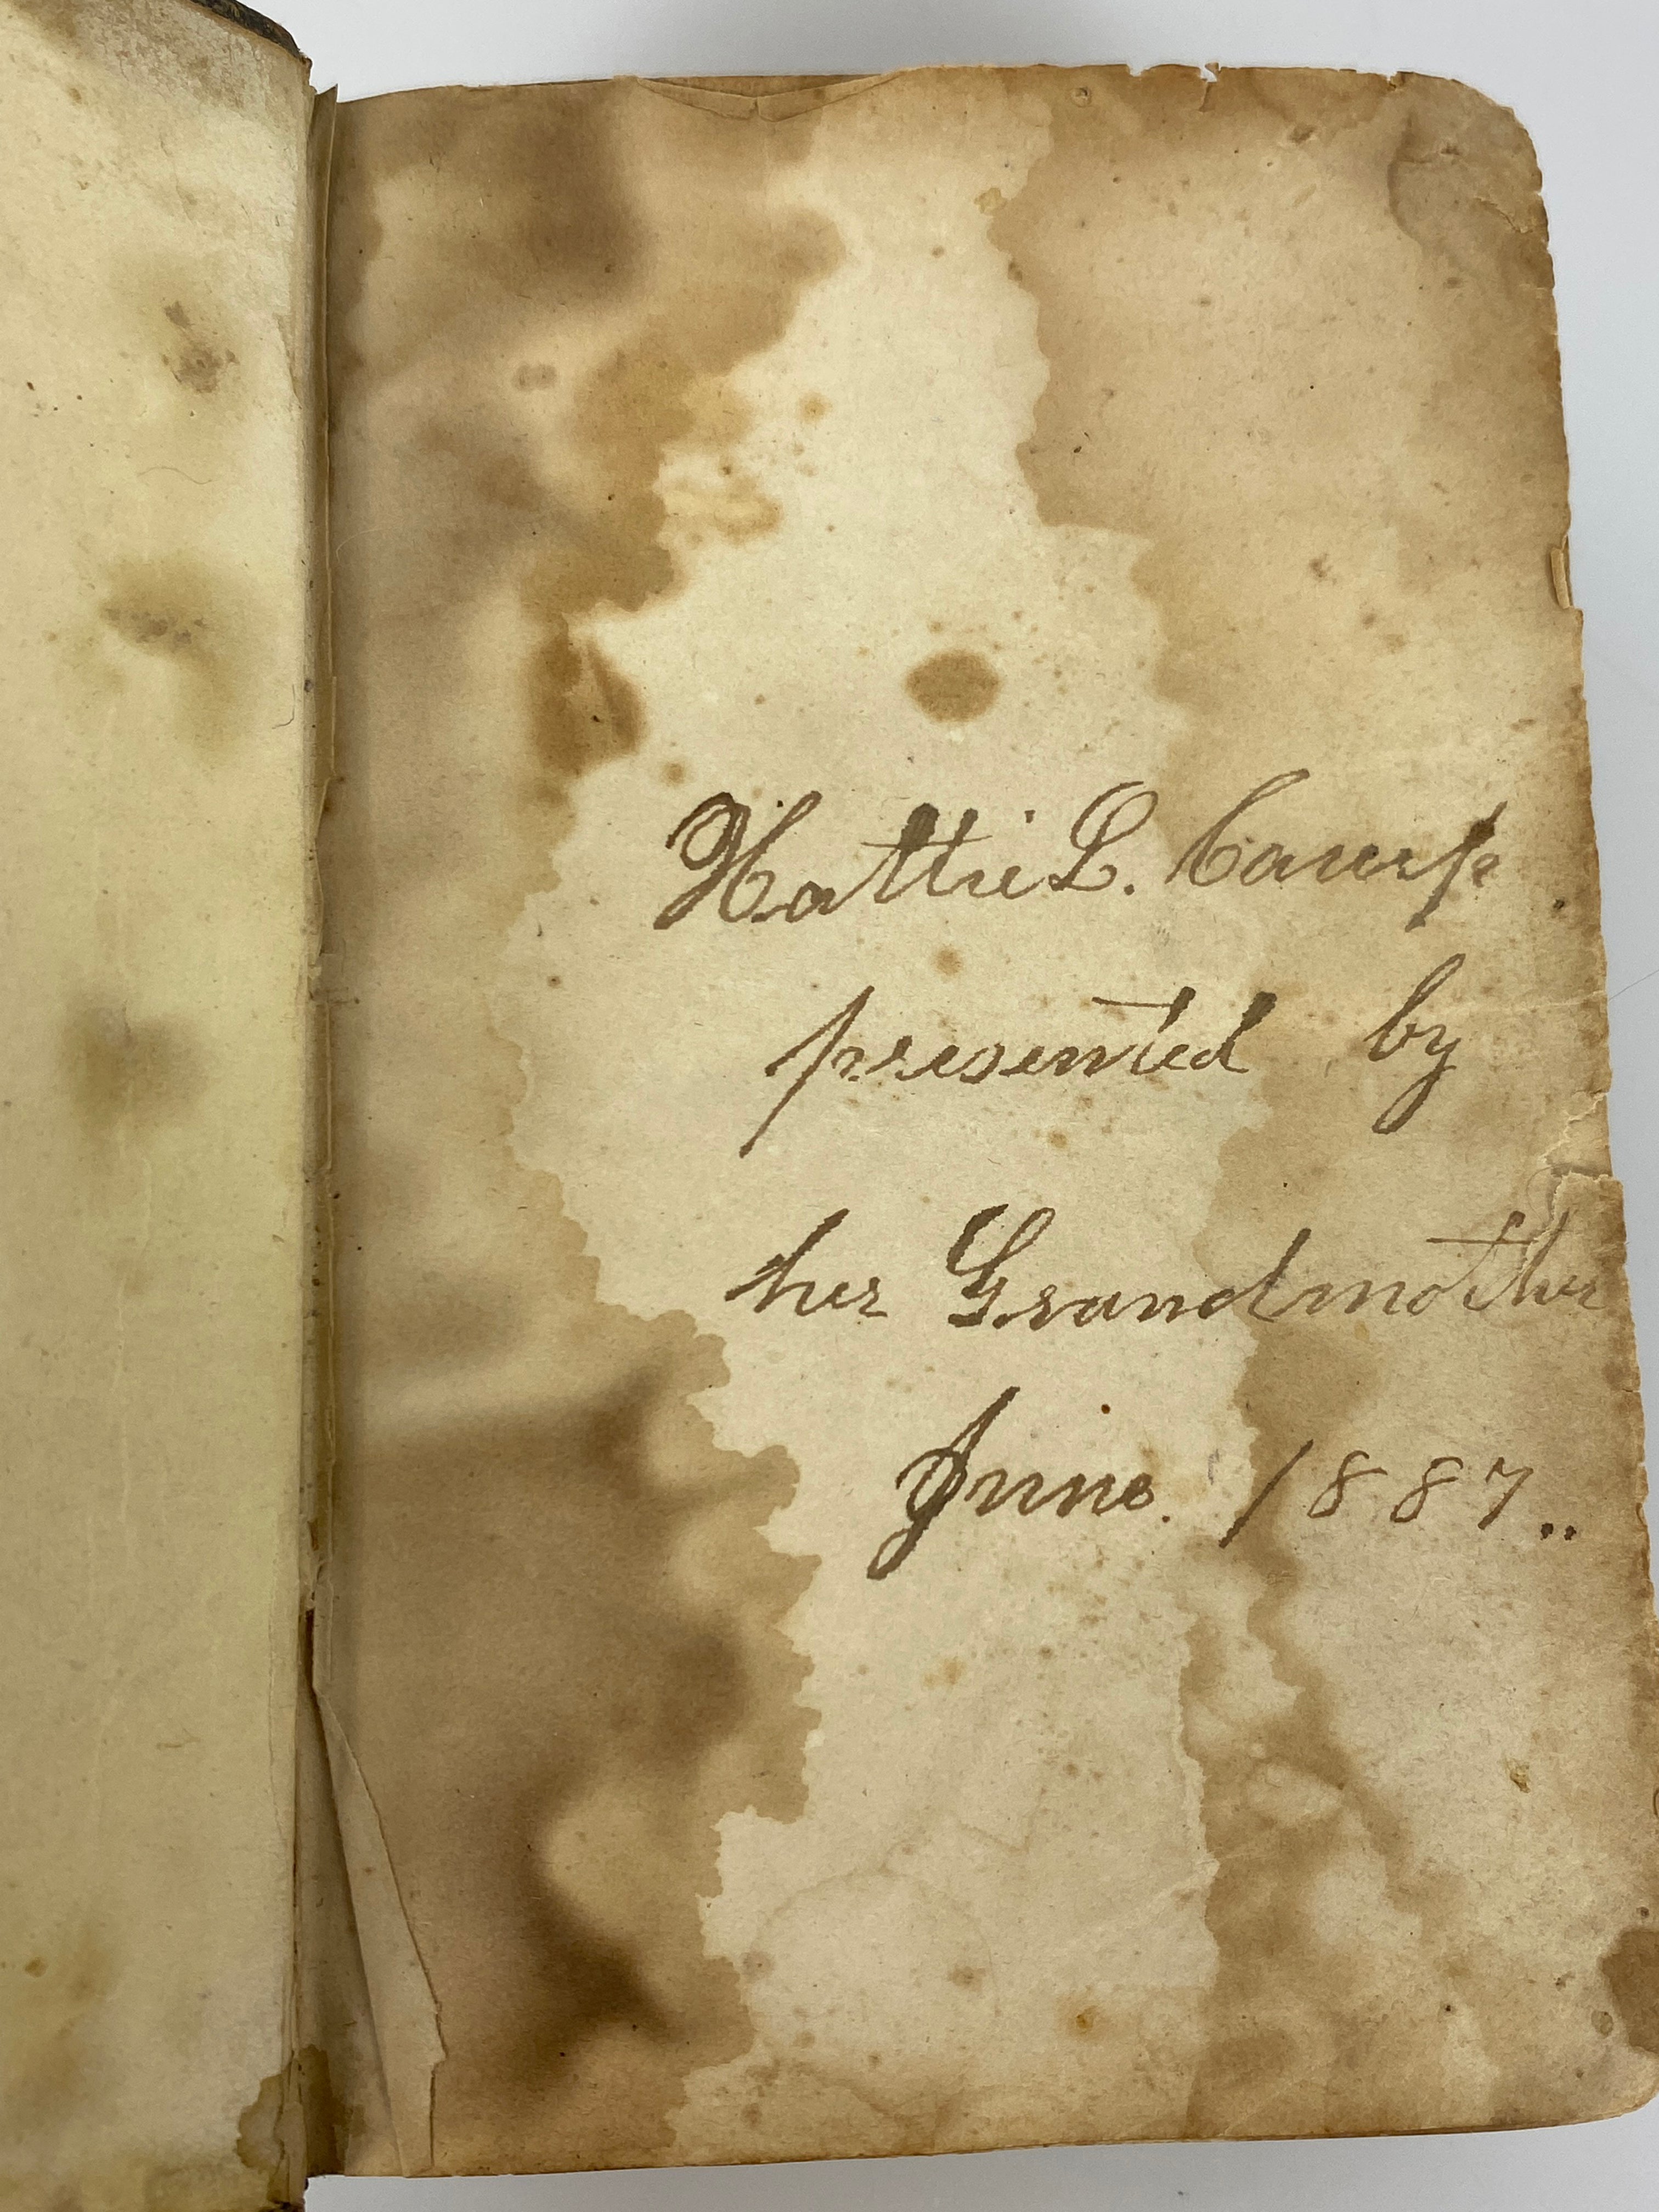 Hattie L. Camp
presented by
her Grandmother
June. 1887..